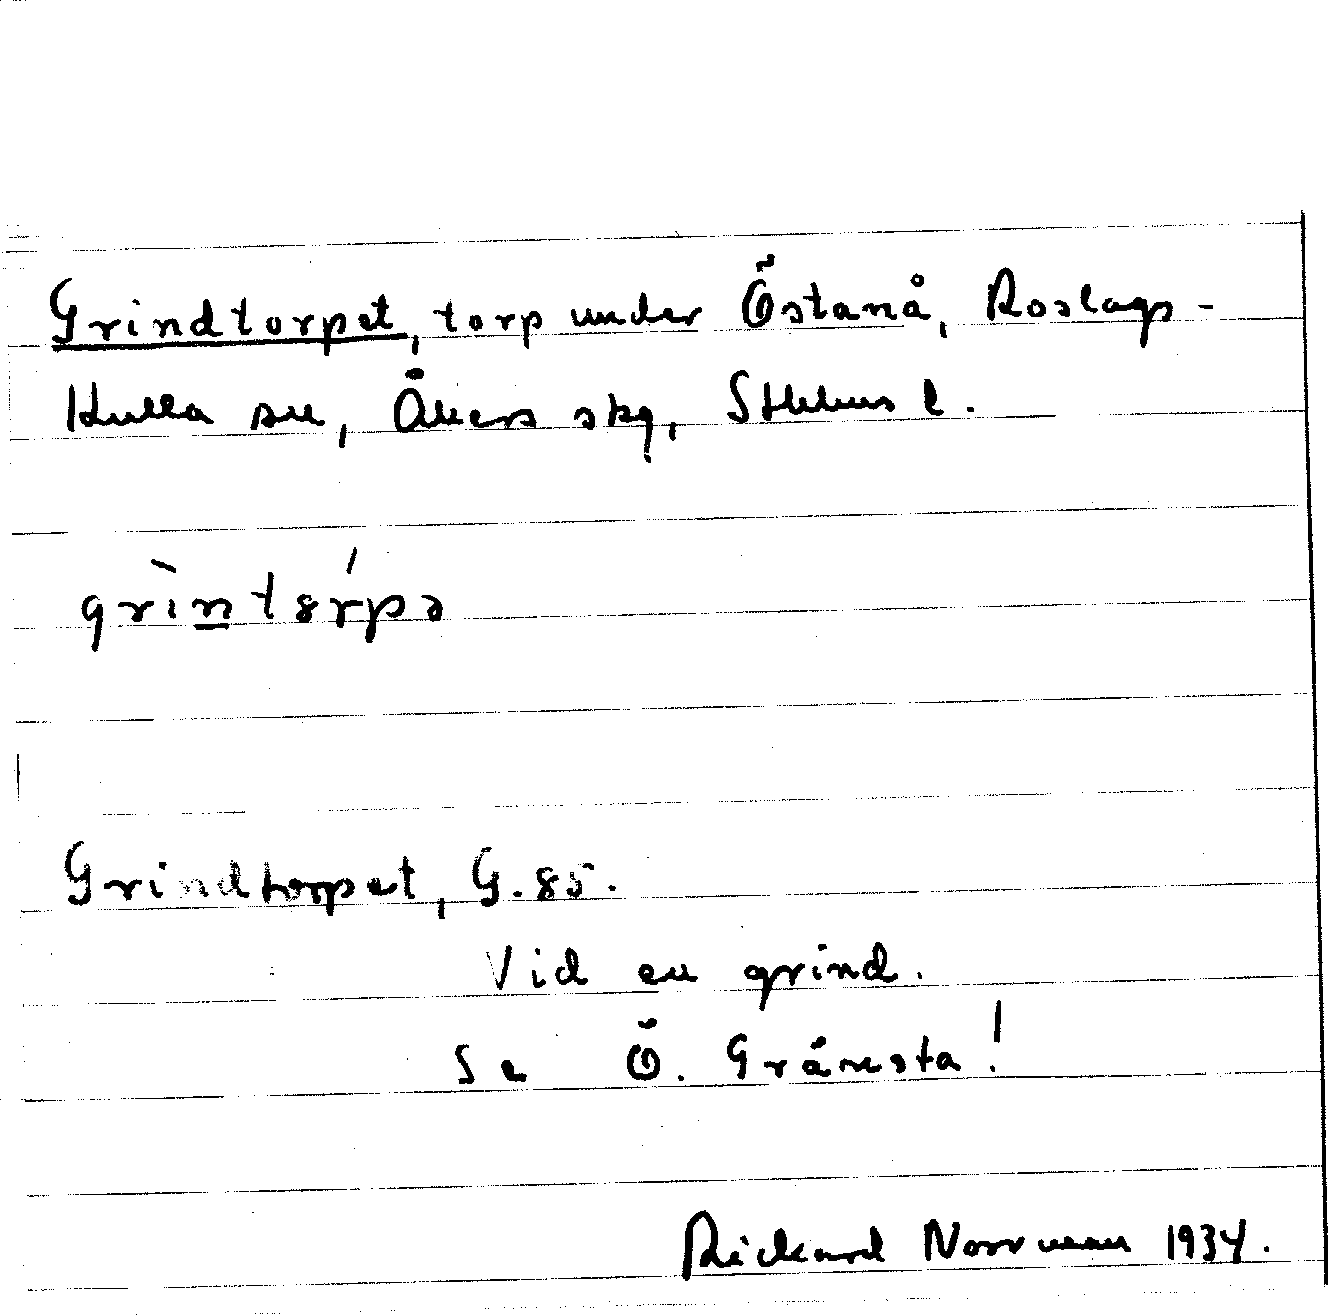 Grindtorpet, torp under Östanå, Roslags-
Kulla sn, Åkers skg, Sthlms l.
grìntórpə
Grindtorpet, G. 85.
Vid en grind.
Se Ö. Gränsta!
Rickard Norrman 1934.